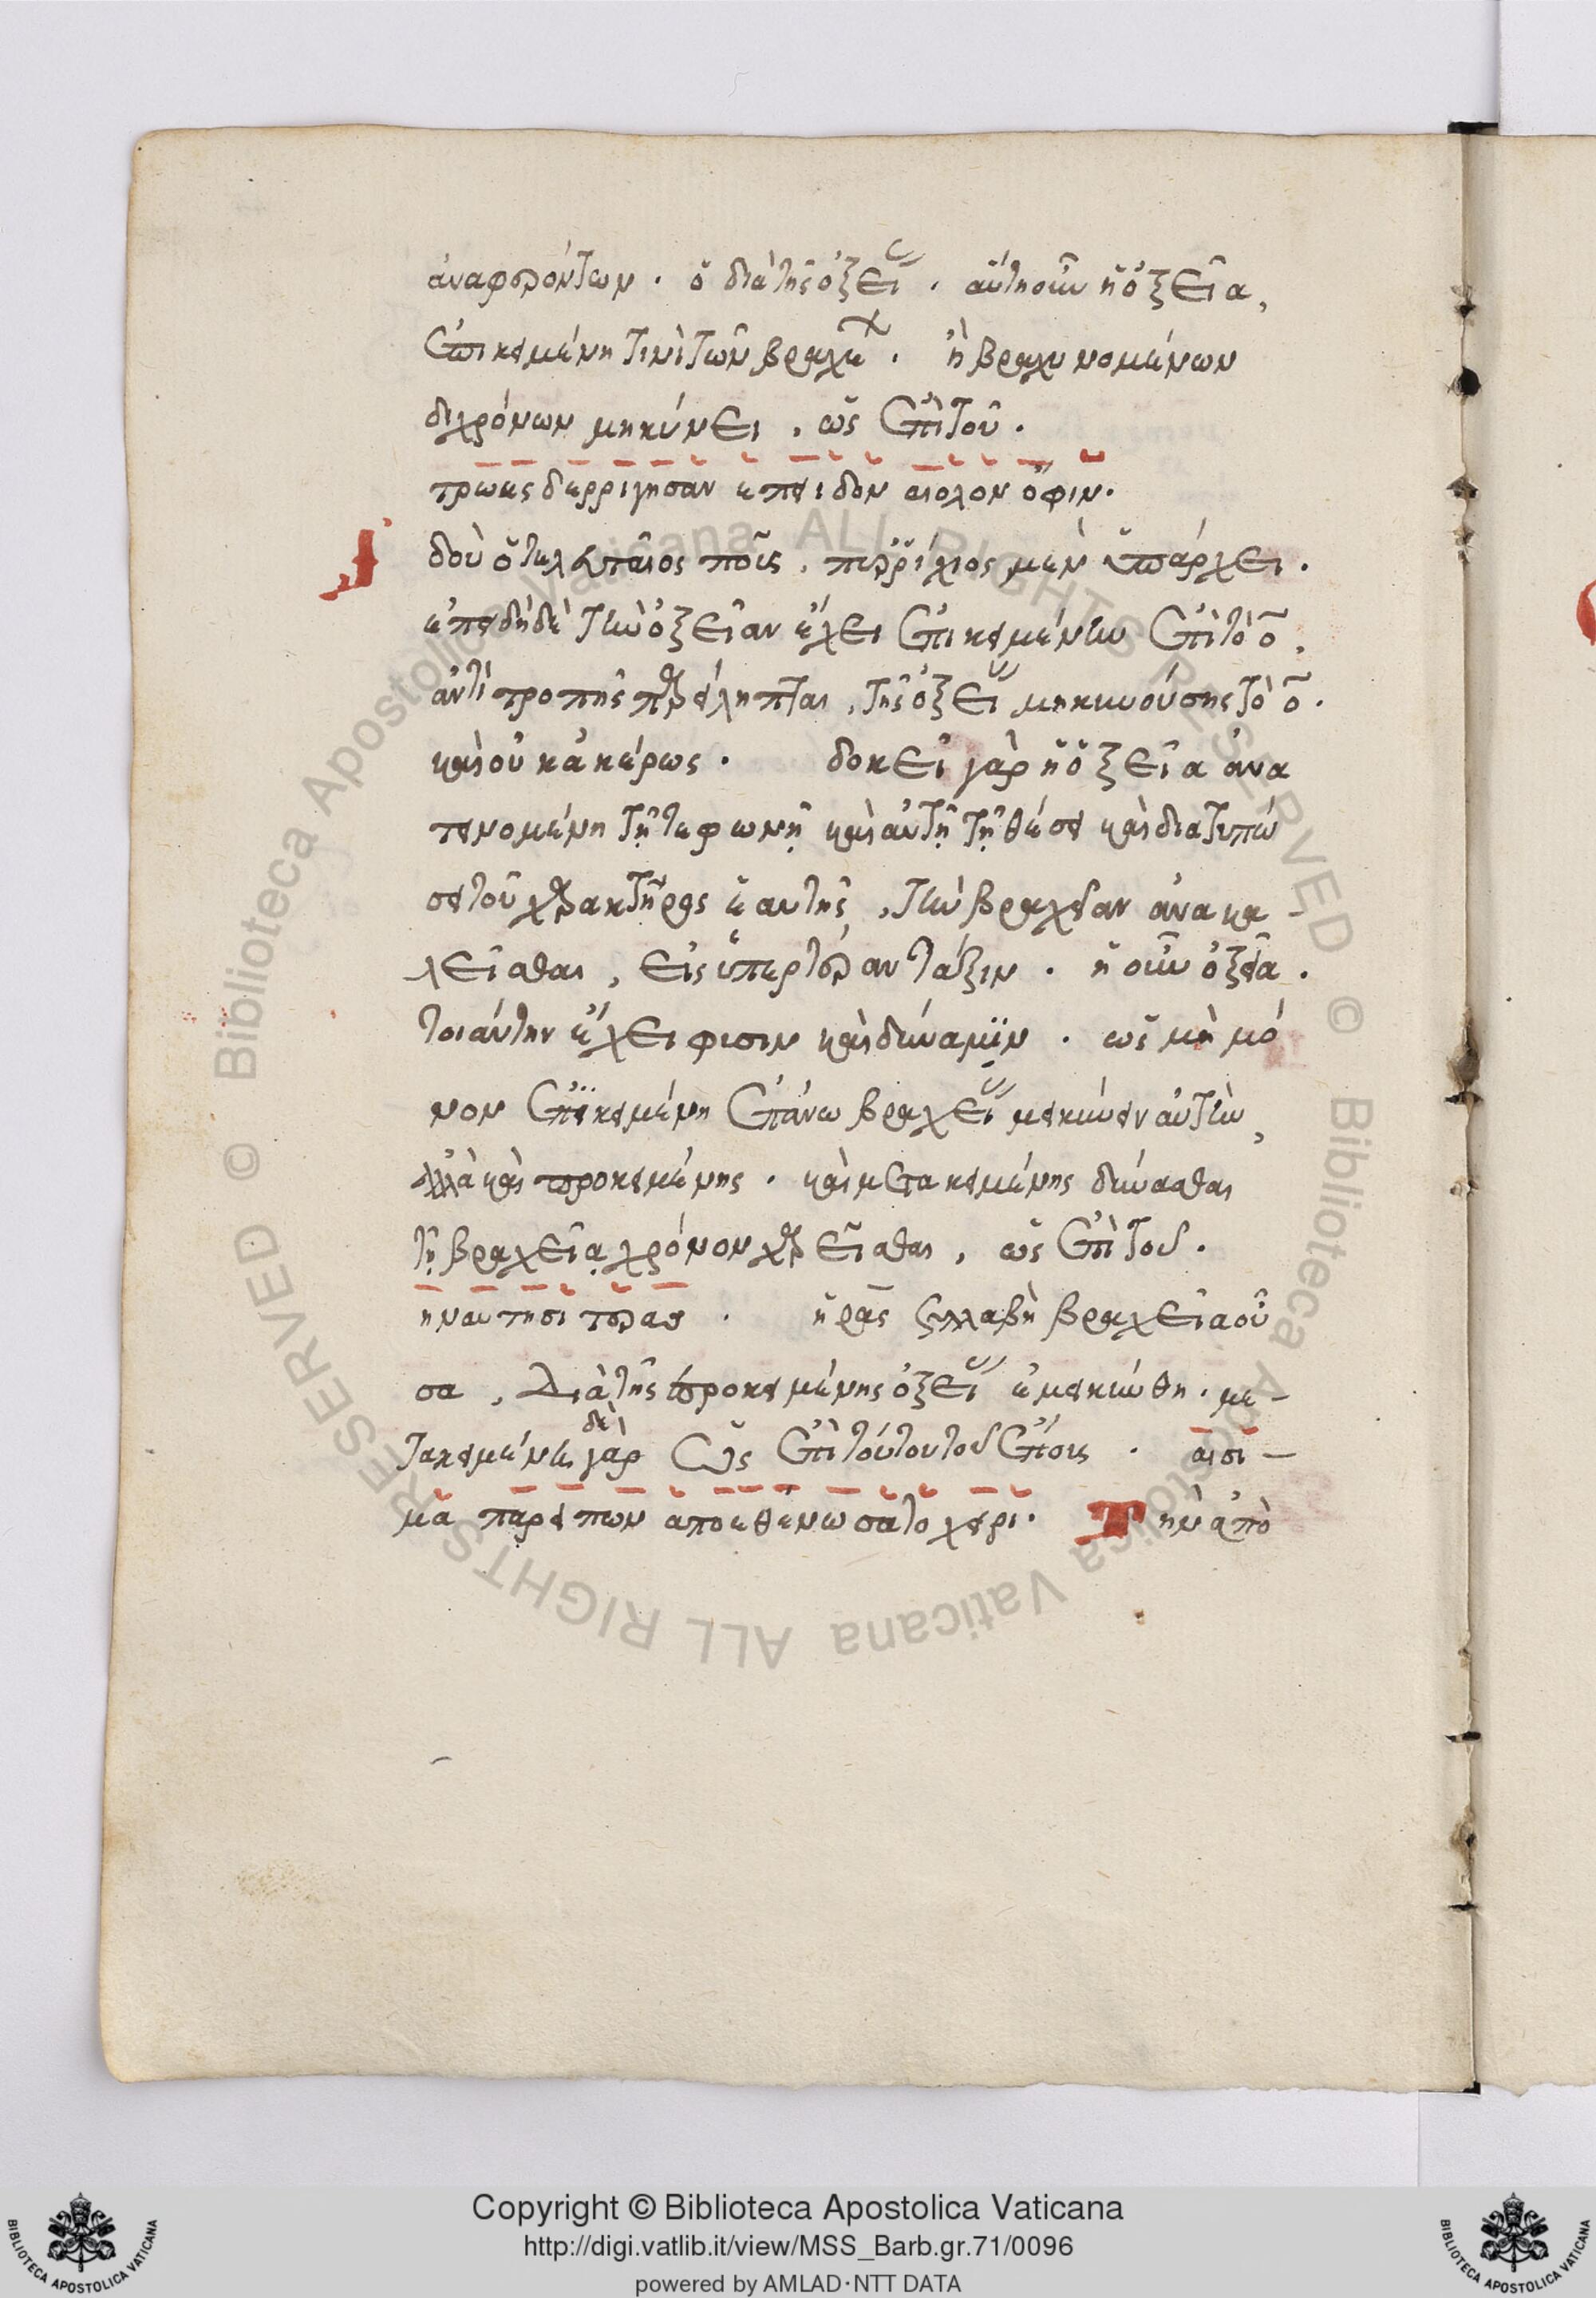 ἀναφερόντων . ὁ διὰ τῆς ὀξείας . αὕτη οὖν ἡ ὀξεῖα,
ἐπικειμένη τινὶ τῶν βραχέων . ἢ βραχυνομένων
διχρόνων μηκύνει , ὡς ἐπὶ τοῦ .
τρωες δερριγησαν επειδον αιολον ὄφιν.
Ἰδοὺ ὁ τελευταῖος ποῦς , πυρρίχιος μὲν ὑπάρχει .
ἐπειδὴ δὲ τὴν ὀξεῖαν ἔχει ἐπικειμένην ἐπὶ τὸ ο ,
ἀντὶ τροπῆς παρείληπται , τῆς ὀξείας μηκυνούσης τὸ ο .
καὶ οὐκ ἀκέρως . δοκεῖ γὰρ ἡ ὀξεῖα ἀνα
τεινομένη τῇ τε φωνῇ καὶ αὐτῇ τῇ θέσει καὶ διατυπώ
σει τοῦ χαρακτῆρος ἑαυτῆς , τὴν βραχεῖαν ἀνακα -
λεῖσθαι , εἰς ὑπερτέραν τάξιν . ἡ οὖν ὀξεῖα .
τοιαύτην ἔχει φισιν καὶ δύναμιν . ὡς μὴ μό
νον ἐπικειμένη ἐπάνω βραχείας μεικύνειν αὐτὴν,
ἀλλὰ καὶ προκειμένης . καὶ μετακειμένης δύνασθαι
τῇ βραχεῖᾳ χρόνον χαρεῖσθαι , ὡς ἐπὶ τοῦ .
ἡ ρας συλλαβὴ βραχεῖα οὖ
σα , διὰ τῆς προκειμένης ὀξείας ἐμεικύνθη . με -
τακειμένης δὲ γὰρ ὡς ἐπὶ τούτου τοῦ ἔπους . αισι -
μα παρειπων αποεθενωσατο χειρι . Τὴν ἀπὸ
Copyright © Biblioteca Apostolica Vaticana
http://digi.vatlib.it/view/MSS_Barb.gr.71/0096
powered by AMLAD·NTT DATA